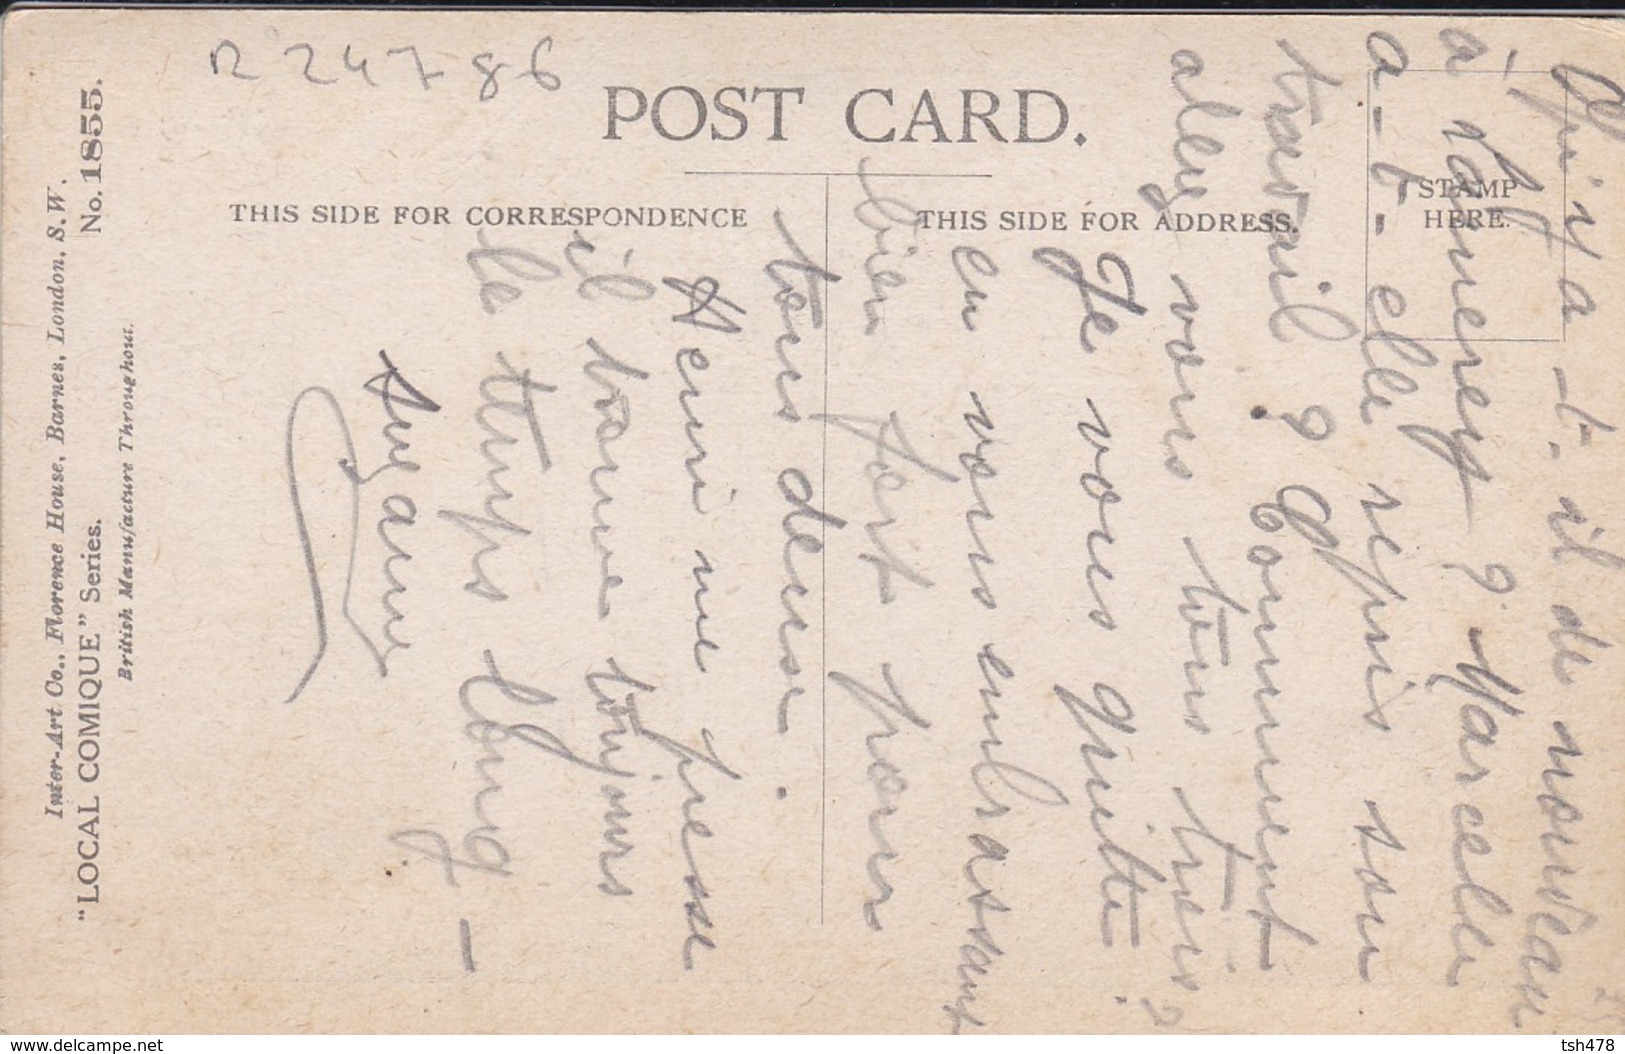 R 24786
POST CARD.
THIS SIDE FOR CORRESPONDENCE
THIS SIDE FOR ADDRESS.
STAMP
HERE.
Inter-Art Co., Florence House, Barnes, London, S.W.
"LOCAL COMIQUE" Series. No. 1855.
British Manufacture Throughout.
Qu'y a-t-il de nouveau
à ? Marcelle
a-t-elle repris son
travail ? Comment
allez vous tous trois ?
Je vous quitte
en vous embrassant
bien fort pour
tous deux.
Henri me presse
il trouve toujours
le temps long -
Suzanne
www.delcampe.net
tsh478